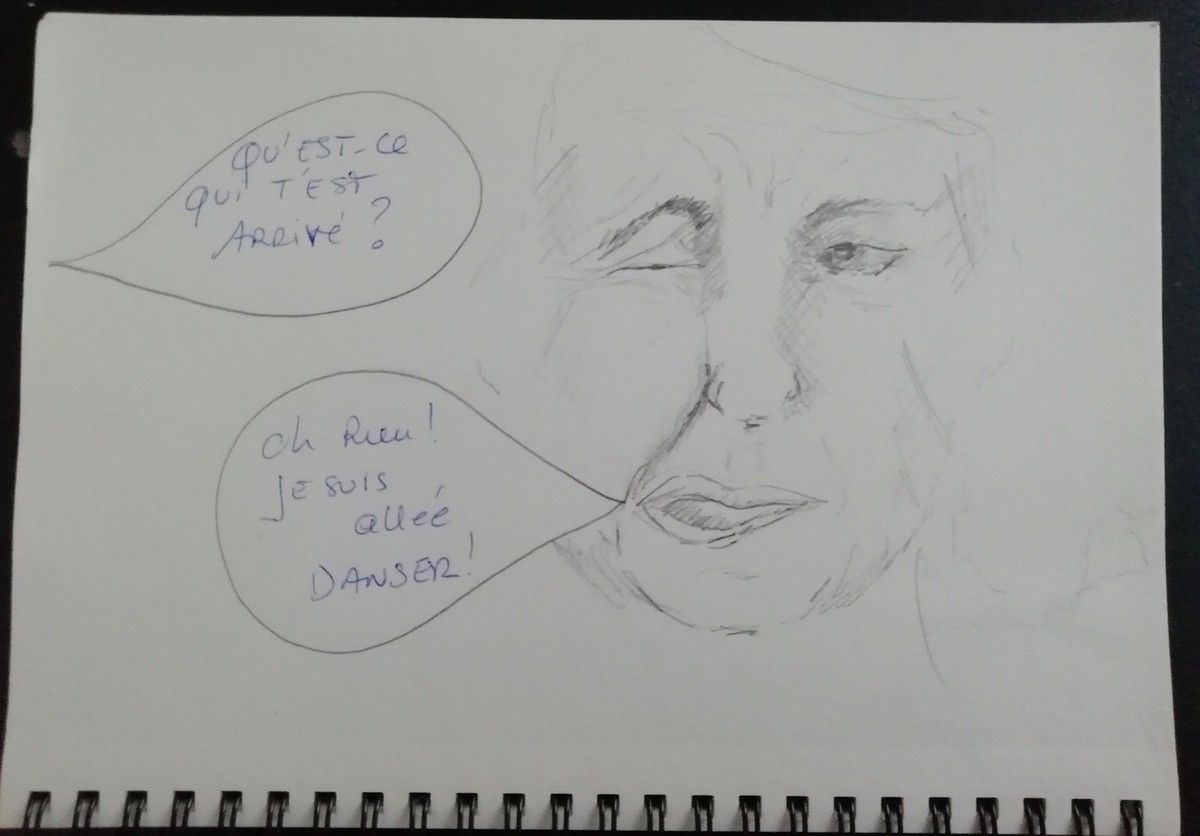 QU'EST-CE
QUI T'EST
ARRIVÉ ?
Oh Rien !
JE SUIS
alléé
DANSER !